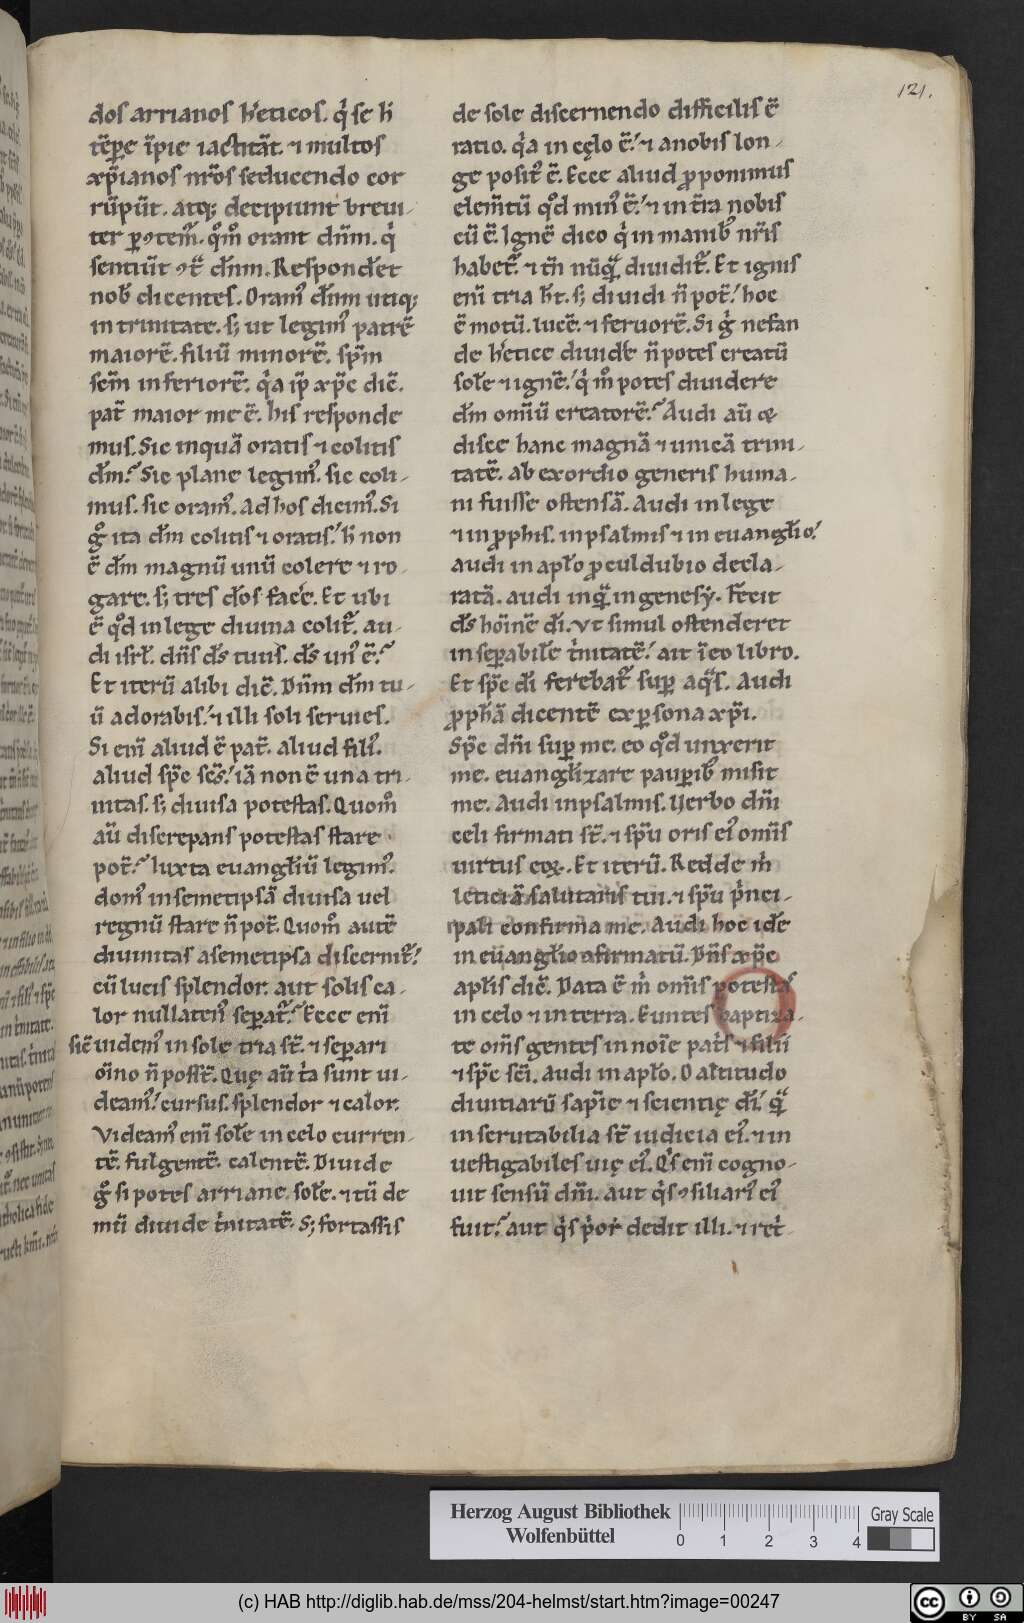 121.
dos arrianos h̄eticos. q̇ se h̄
tēꝑe īpie iactitāt. ⁊ multos
xp̄ianos nr̄os seducendo cor
rūpūt. atq; decipiunt breui-
ter ꝑꝯtem᷑. qm̊ orant dn̄m. q̇
sentiūt ꝯt̄ dn̄m. Respondet
nob̄ dicentes. Oram᷒ dn̄m utiq;
in trinitate. s; ut legim᷒ patrē
maiorē. filiū minorē. sp̄m
sc̄m inferiorē. q̇a ip̄ xp̄c dic̄.
pat̄ maior me ē. his responde
mus. Sic inquā oratis ⁊ colitis
dm̄? Sic plane legim᷒. sic coli-
mus. sic oram᷒. Ad hos dicim᷒. Si
g̊ ita dm̄ colitis ⁊ oratis. h̄ non
ē dm̄ magnū unū colere ⁊ ro-
gare. s; tres dōs facé. Et ubi
ē qd̊ in lege diuina colit᷑. au-
di isrł. dn̄s ds̄ tuus. ds̄ un᷒ ē?
Et iterū alibi dic̄. Dn̄m dm̄ tu-
ū adorabis. ⁊ illi soli seruies.
Si eni̅ aliud ē pat̄. aliud fili᷒.
aliud sp̄c sc̄s. iā non ē una tri-
nitas. s; diuisa potestas. Quom̊
aū discrepans potestas stare
pot̄? Iuxta euangłiū legim᷒.
dom᷒ in semetipsā diuisa uel
regnū stare n̄ pot̄. Quom̊ autē
diuinitas asemetipsa discernit᷑?
cū lucis splendor. aut solis ca-
lor nullaten᷒ seꝑat᷑? Ecce eni̅
sic̄ uidem᷒ in sole tria st̄. ⁊ seꝑari
oi̅no n̄ posst̄. Quę aū t̓a sunt ui-
deam᷒. cursus. splendor ⁊ calor.
Videam᷒ eni̅ solē in celo curren-
tē. fulgentē. calentē. Diuide
g̊ si potes arriane. solē. ⁊ tū de
mū diuide t̓nitatē. S; fortassis
de sole discernendo difficilis ē
ratio. q̇a in cęlo ē. ⁊ anobis lon-
ge posit᷒ ē. Ecce aliud ꝓponimus
elem̄tū qd̊ min᷒ ē. ⁊ in t̄ra nobis
cū ē. Ignē dico q̇ in manib᷒ nr̄is
habet᷑. ⁊ tn̄ nūq̄ diuidit᷑. Et ignis
eni̅ tria h̄t. s; diuidi n̄ pot̄. hoc
ē motū. lucē. ⁊ feruorē. Si g̊ nefan
de h̄etice diuidē n̄ potes creatū
solē ⁊ ignē. q̇ m̊ potes diuidere
dm̄ omiū creatorē? Audi aū ⁊
disce hanc magnā ⁊ unicā trini-
tatē. ab exordio generis huma-
ni fuisse ostensā. Audi in lege
⁊ in ꝓphis. in psalmis ⁊ in euangłio.
audi in apło ꝓculdubio decla-
ratā. audi inq̄ in genesẏ. Fecit
ds̄ hoi̅nē di̅. Vt simul ostenderet
in seꝑabilē t̓nitatē. ait i̅ eo libro.
Et sp̄c di̅ ferebat᷑ suꝑ aq̄s. Audi
ꝓphā dicentē ex ꝑsona xp̄i.
Sp̄c dn̄i suꝑ me. eo qd̊ unxerit
me. euangłizare pauꝑib᷒ misit
me. Audi in psalmis. Verbo dn̄i
celi firmati st̄. ⁊ sp̄u oris ei᷒ omi̅s
uirtus eoꝝ. Et iterū. Redde m̓
leticiā salutaris tui. ⁊ sp̄u p̓nci-
pali confirma me. Audi hoc idē
in euangłio afirmatū. Dn̄s xp̄c
apłis dic̄. Data ē m̓ omi̅s potestas
in celo ⁊ in terra. Euntes baptiza-
te om̄s gentes in noi̅e pat̓s ⁊ filii
⁊ sp̄c sc̄i. Audi in apło. O altitudo
diuitiarū sapi̅e ⁊ scientię di̅. q̄
inscrutabilia st̄ iudicia ei᷒. ⁊ in
uestigabiles uię ei᷒. Q̓s eni̅ cogno-
uit sensū dn̄i. aut q̓s ꝯsiliari᷒ ei᷒
fuit? aut q̓s p̓or dedit illi. ⁊ ret̓-
Herzog August Bibliothek
Wolfenbüttel
0 1 2 3 4
Gray Scale
(c) HAB http://diglib.hab.de/mss/204-helmst/start.htm?image=00247
cc BY SA